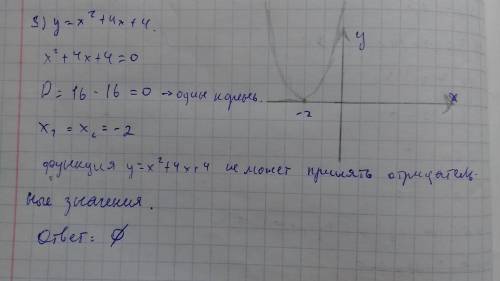 3) y = x² + 4x + 4.
x² + 4x + 4 = 0
D = 16 - 16 = 0 → один корень.
x₁ = x₂ = -2
функция y = x² + 4x + 4 не может принять отрицатель-
ные значения.
Ответ: ∅
y
x
-2